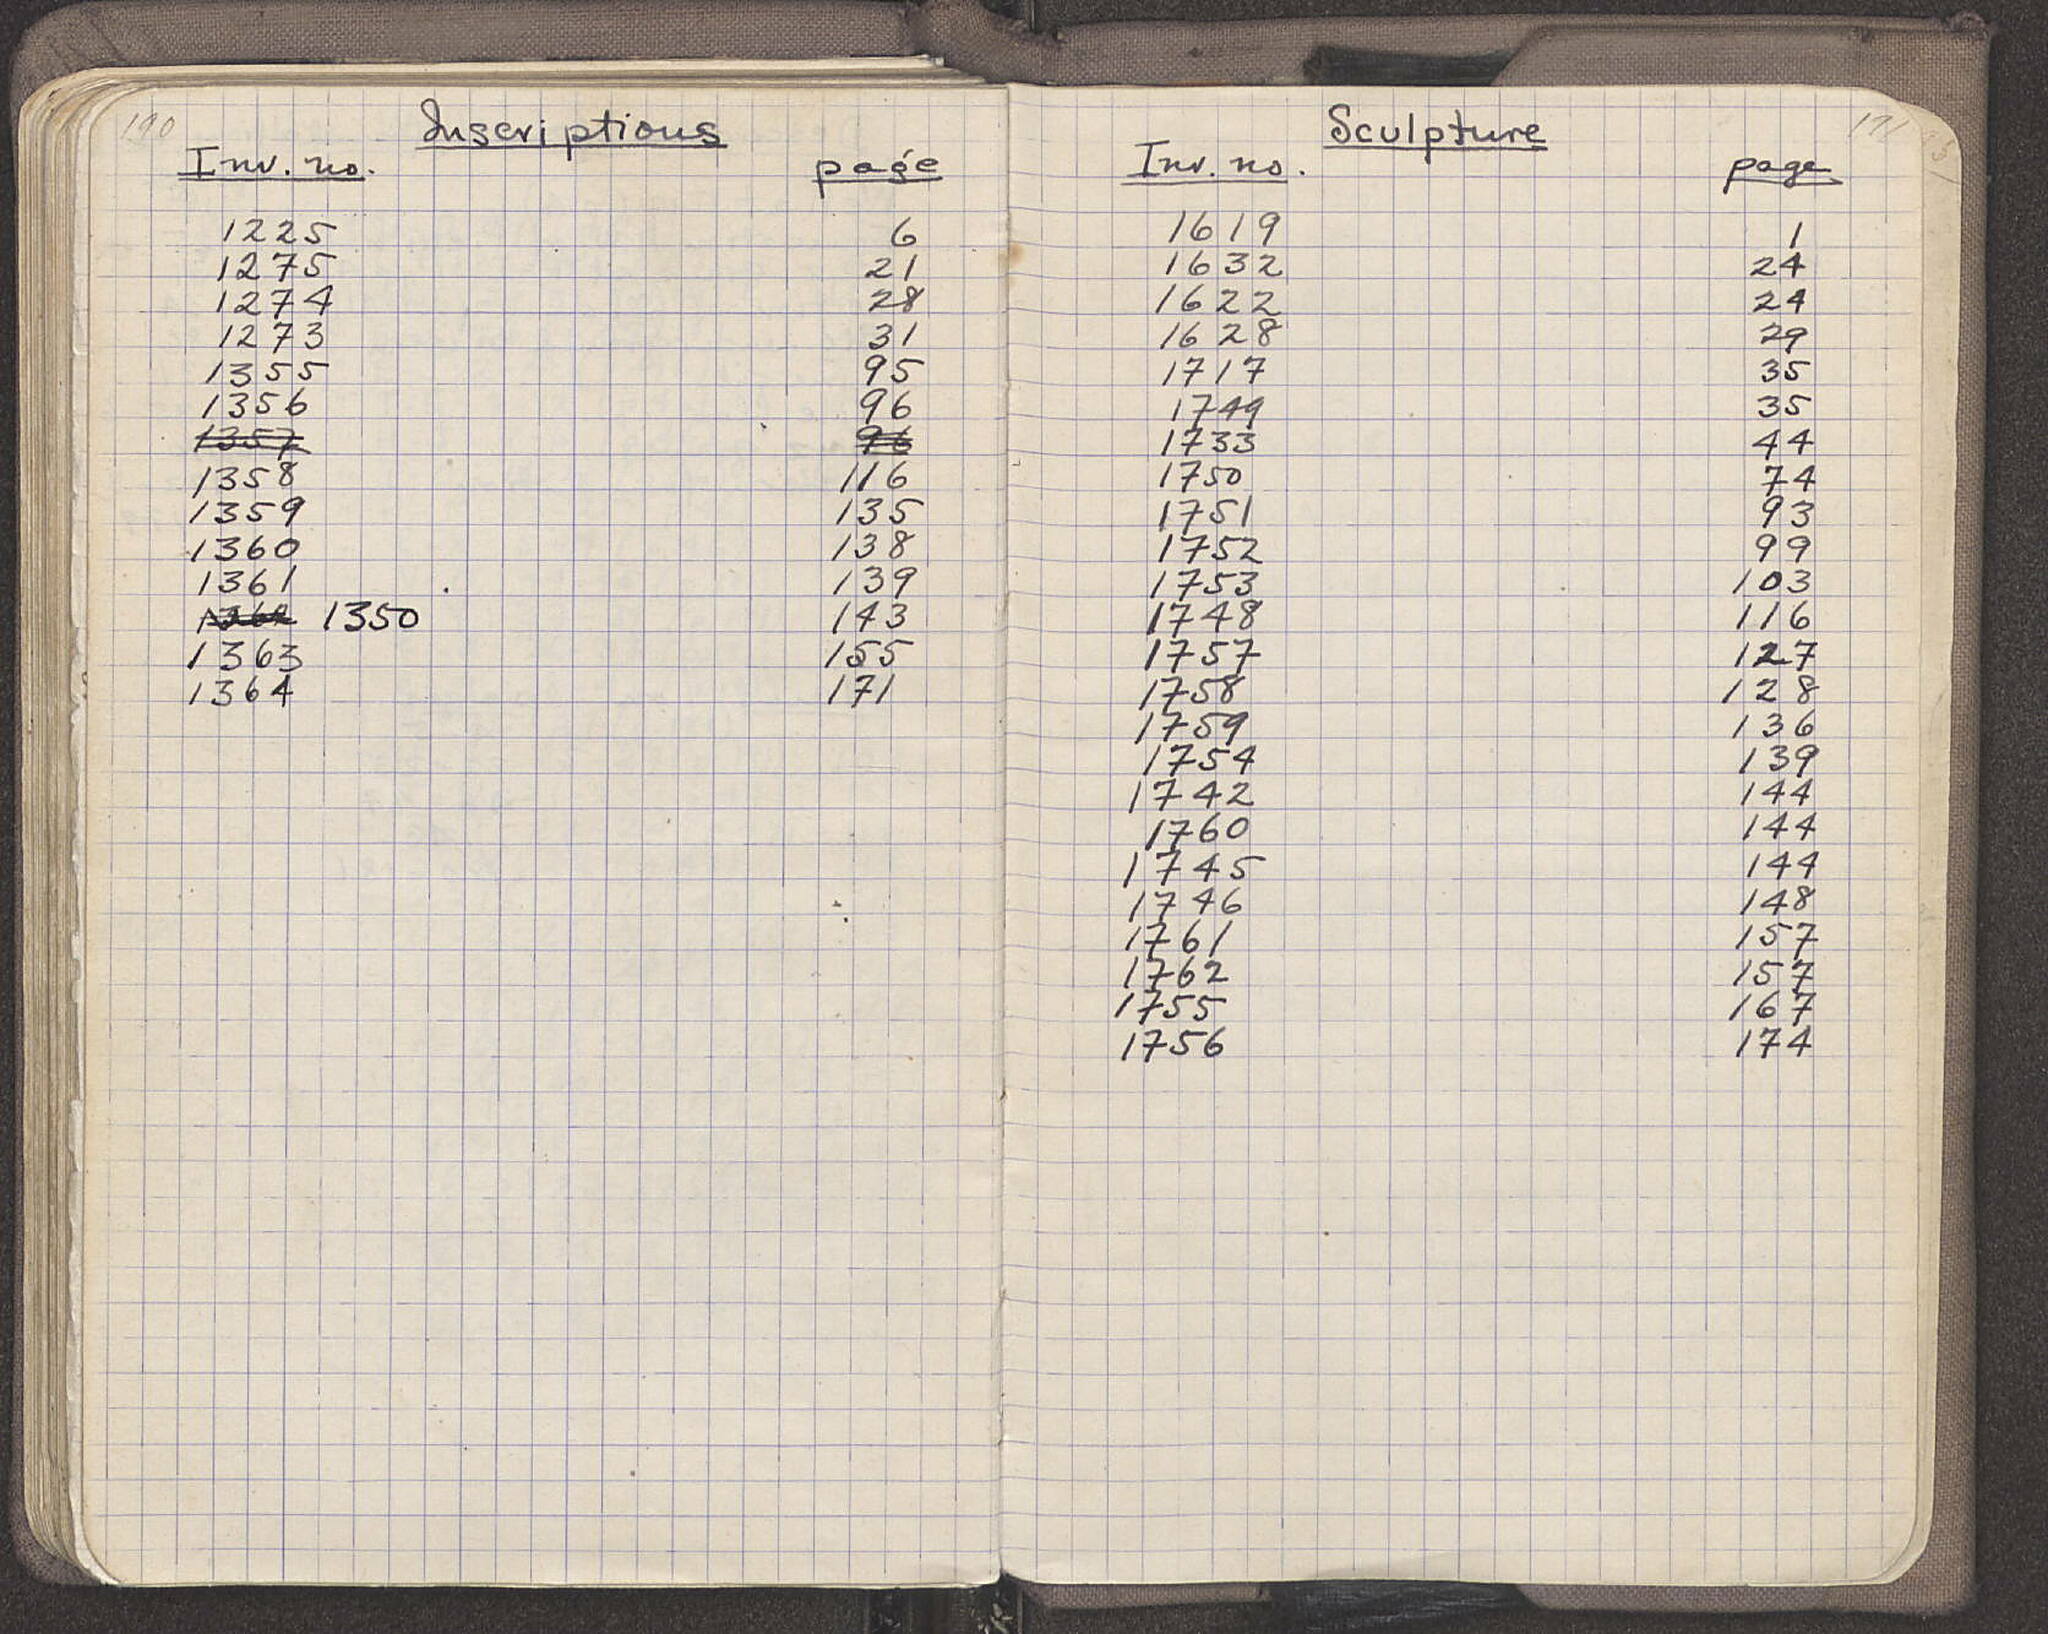 190
Inscriptions
Inv. no. page
1225 6
1275 21
1274 28
1273 31
1355 95
1356 96
1357 96
1358 116
1359 135
1360 138
1361 139
1350 143
1363 155
1364 171
191
Sculpture
Inv. no. page
1619 1
1632 24
1622 24
1628 29
1717 35
1749 35
1733 44
1750 74
1751 93
1752 99
1753 103
1748 116
1757 127
1758 128
1759 136
1754 139
1742 144
1760 144
1745 144
1746 148
1761 157
1762 157
1755 167
1756 174